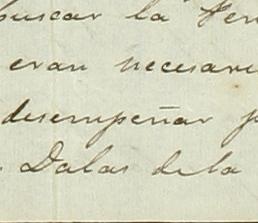 buscar la
eran necesari
desempeñar p
Dalas de la